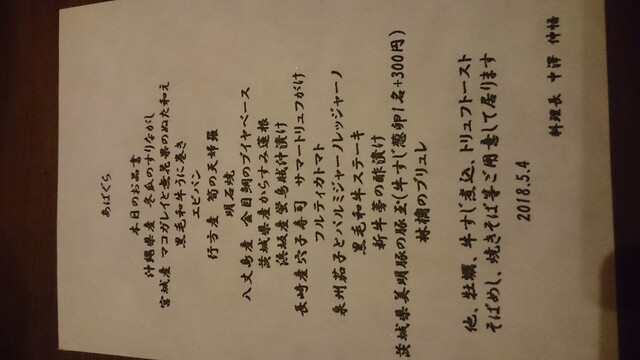 あばぐら
本日のお品書
沖縄県産 冬瓜のすりながし
宮城産 マコガレイと無花果のぬた和え
黒毛和牛うに巻き
エビパン
行方産 筍の天婦羅
明石焼
八丈島産 金目鯛のブイヤベース
茨城県産からすみ蓮根
浜坂産蛍烏賊沖漬け
長崎産穴子寿司 サマートリュフがけ
フルティカトマト
泉州茄子とパルミジャーノレッジャーノ
黒毛和牛ステーキ
新牛蒡の酢漬け
茨城県美明豚の豚玉(牛すじ葱卵1名+300円)
林檎のブリュレ
他、牡蠣、牛すじ煮込、トリュフトースト
そばめし、焼きそば等ご用意して居ります
2018.5.4
料理長 中澤 伸悟